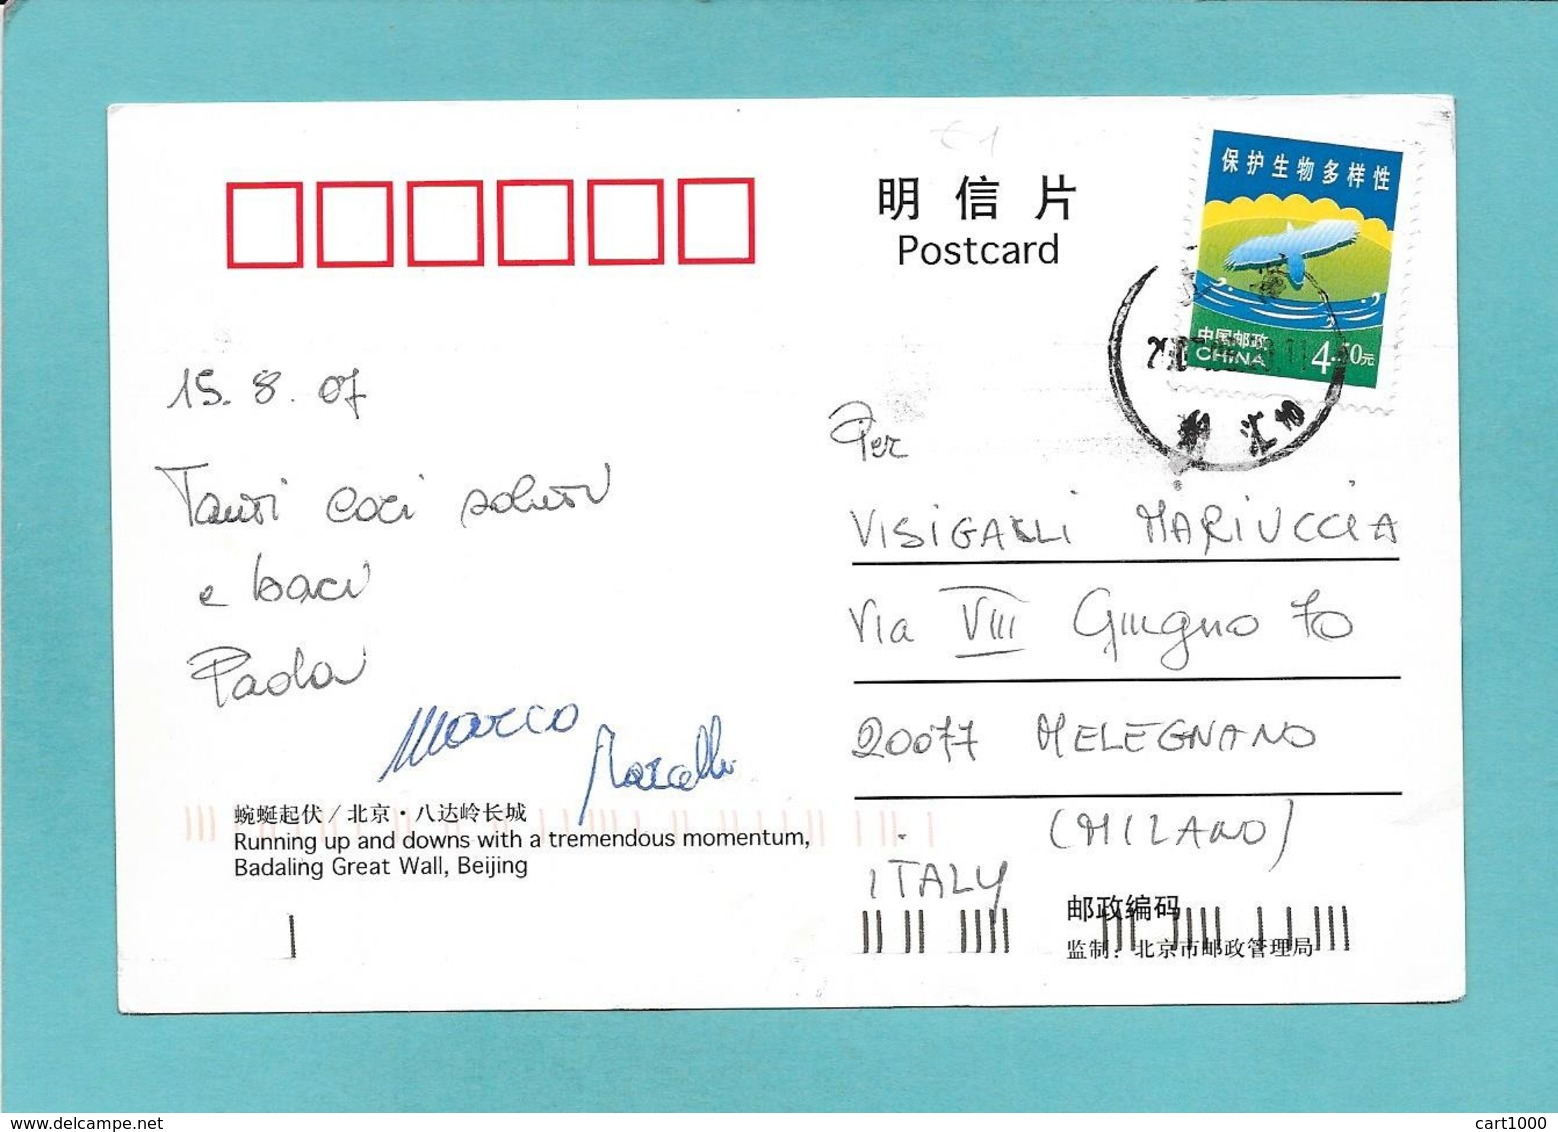 明信片
Postcard
保护生物多样性
中国邮政
CHINA
4.50元
15.8.07
Tanti cari saluti
e baci
Paola
Marco
Marcello
Per
VISIGALLI MARIUCCIA
Via VIII Giugno 70
20077 MELEGNANO
(MILANO)
ITALY
蜿蜒起伏 / 北京·八达岭长城
Running up and downs with a tremendous momentum,
Badaling Great Wall, Beijing
邮政编码
监制：北京市邮政管理局
www.delcampe.net
cart1000